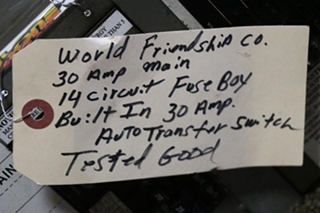 World Friendship Co.
30 Amp main
14 Circuit Fuse Boy
Built In 30 Amp.
Auto Transfer Switch
Tested Good